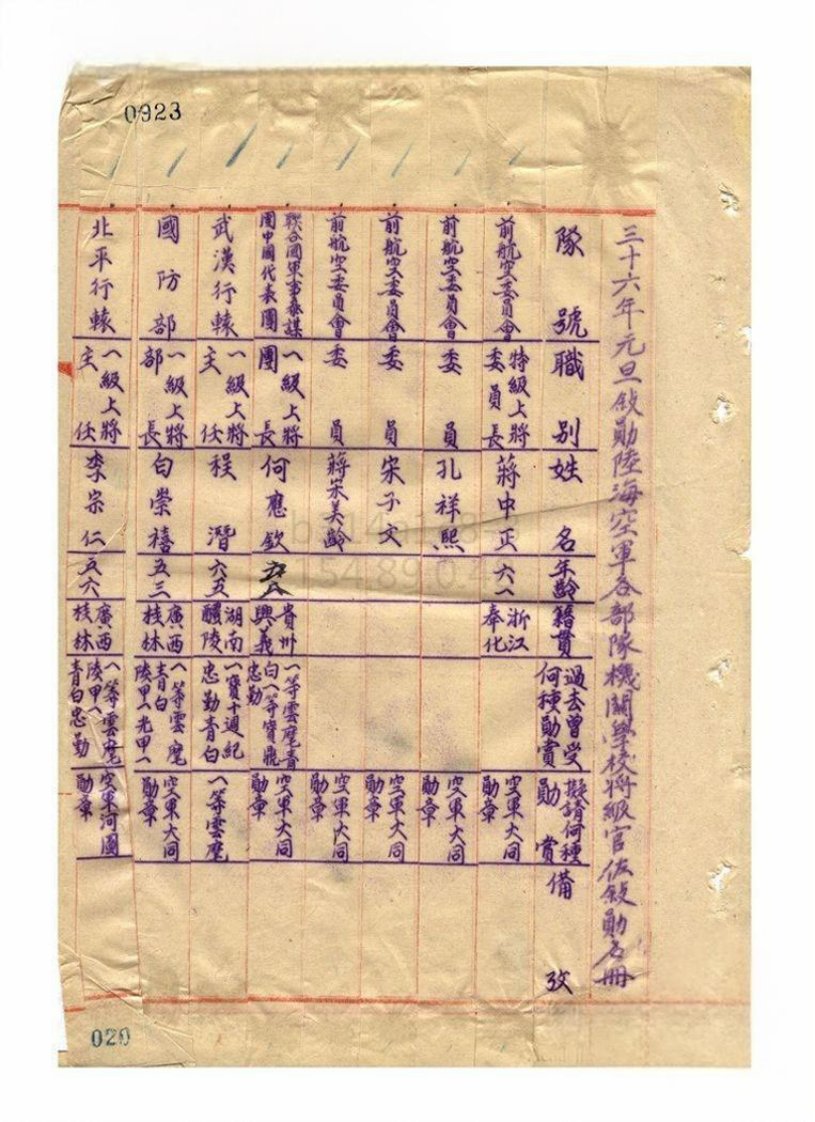 0923
三十六年元旦敍勛陸海空軍各部隊機關學校將級官佐敍勛名冊
隊號 職別 姓名 年齡 籍貫 過去曾受何種勛賞 擬請何種勛賞 備攷
前航空委員會 特級上將委員長 蔣中正 六一 浙江奉化 空軍大同勛章
前航空委員會 委員 孔祥熙 空軍大同勛章
前航空委員會 委員 宋子文 空軍大同勛章
前航空委員會 委員 蔣宋美齡 空軍大同勛章
聯合國軍事參謀團中國代表團 一級上將團長 何應欽 五八 貴州興義 一等雲麾青白一等寶鼎忠勤 空軍大同勛章
武漢行轅 一級上將主任 程潛 六五 湖南醴陵 一寶十週紀忠勤青白 一等雲麾
國防部 一級上將部長 白崇禧 五三 廣西桂林 一等雲麾青白陵甲一光甲一 空軍大同勛章
北平行轅 一級上將主任 李宗仁 五六 廣西桂林 一等雲麾陵甲一青白忠勤 空軍河圖勛章
020